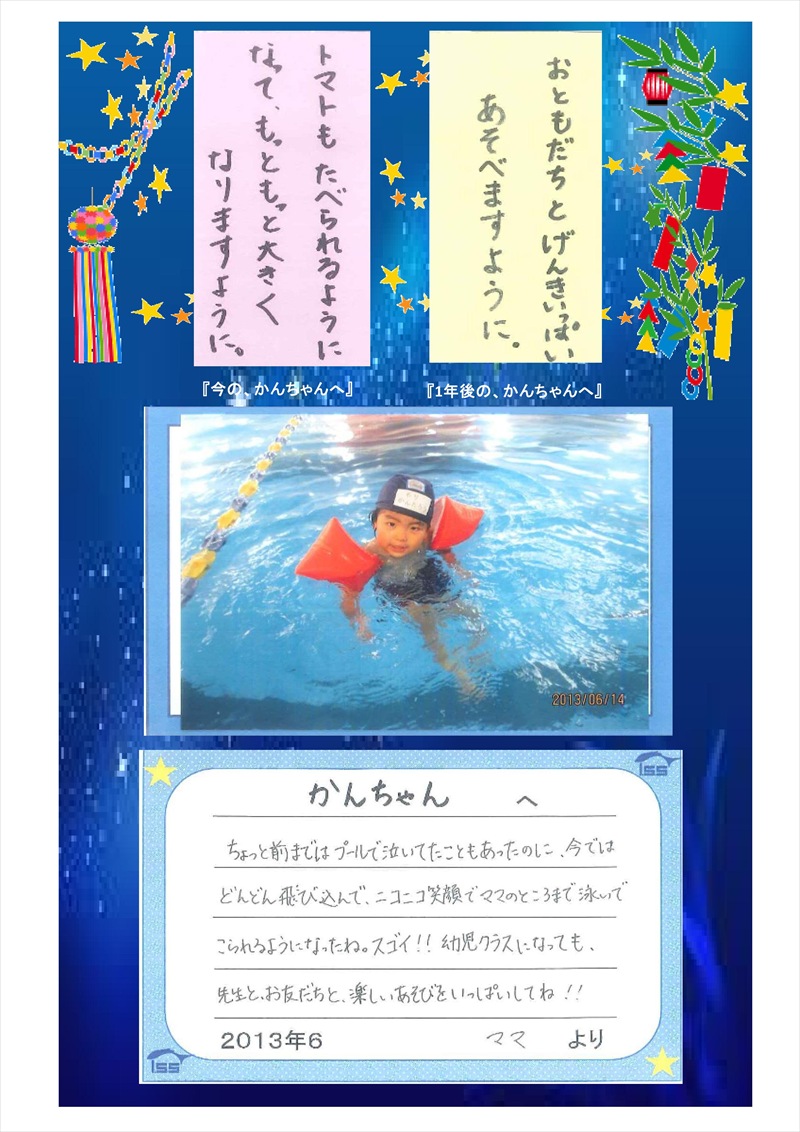 トマトも たべられるように
なって、もっともっと大きく
なりますように。
おともだちと げんきいっぱい
あそべますように。
『今の、かんちゃんへ』
『1年後の、かんちゃんへ』
2013/06/14
ISS
かんちゃん へ
ちょっと前まではプールで泣いてたこともあったのに、今では
どんどん飛び込んで、ニコニコ笑顔でママのところまで泳いで
こられるようになったね。スゴイ!! 幼児クラスになっても、
先生と、お友だちと、楽しいあそびをいっぱいしてね!!
2013年6 ママ より
ISS